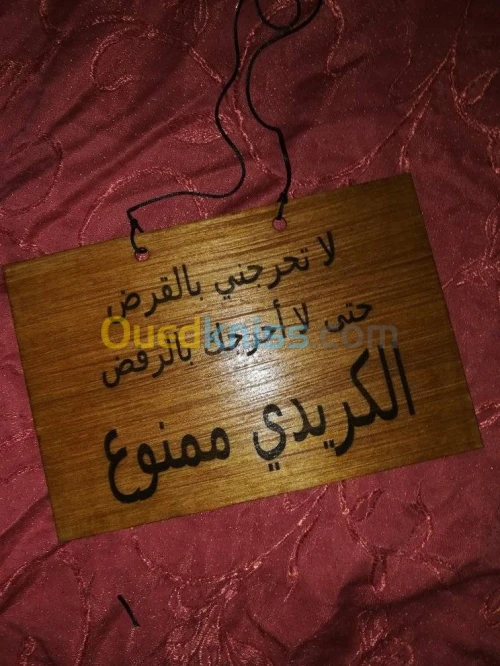 لا تحرجني بالقرض
حتى لا أحرجك بالرفض
الكريدي ممنوع
Ouedkniss.com